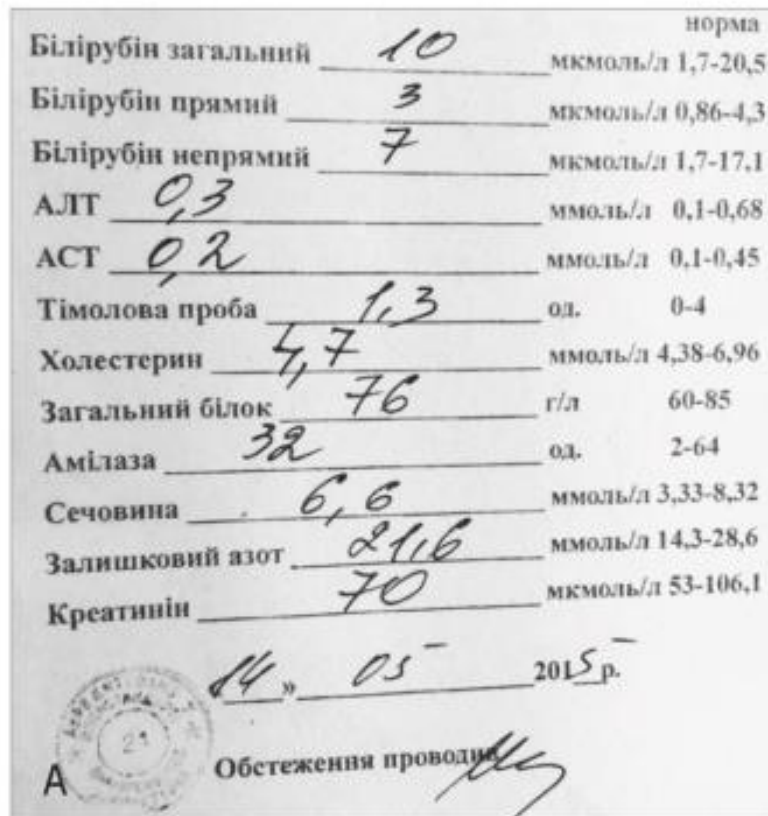 норма
Білірубін загальний 10 мкмоль/л 1,7-20,5
Білірубін прямий 3 мкмоль/л 0,86-4,3
Білірубін непрямий 7 мкмоль/л 1,7-17,1
АЛТ 0,3 ммоль/л 0,1-0,68
АСТ 0,2 ммоль/л 0,1-0,45
Тімолова проба 1,3 од. 0-4
Холестерин 4,7 ммоль/л 4,38-6,96
Загальний білок 76 г/л 60-85
Амілаза 32 од. 2-64
Сечовина 6,6 ммоль/л 3,33-8,32
Залишковий азот 21,6 ммоль/л 14,3-28,6
Креатинін 70 мкмоль/л 53-106,1
14 » 05 2015 р.
21
Обстеження проводив
А